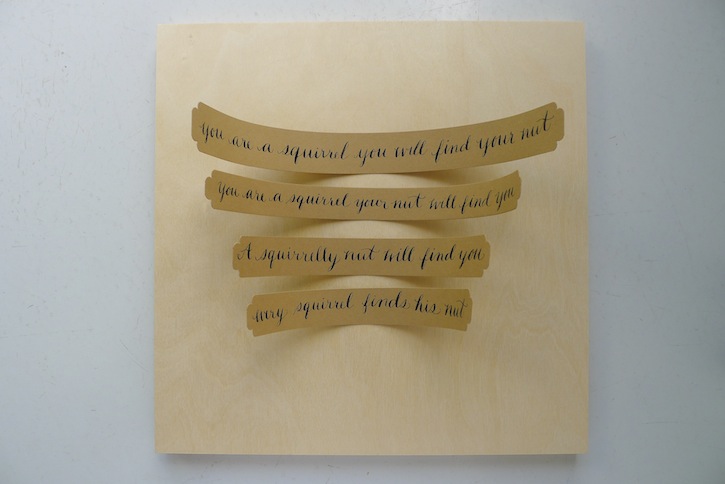 you are a squirrel you will find your nut
you are a squirrel your nut will find you
A squirrelly nut will find you
every squirrel finds his nut